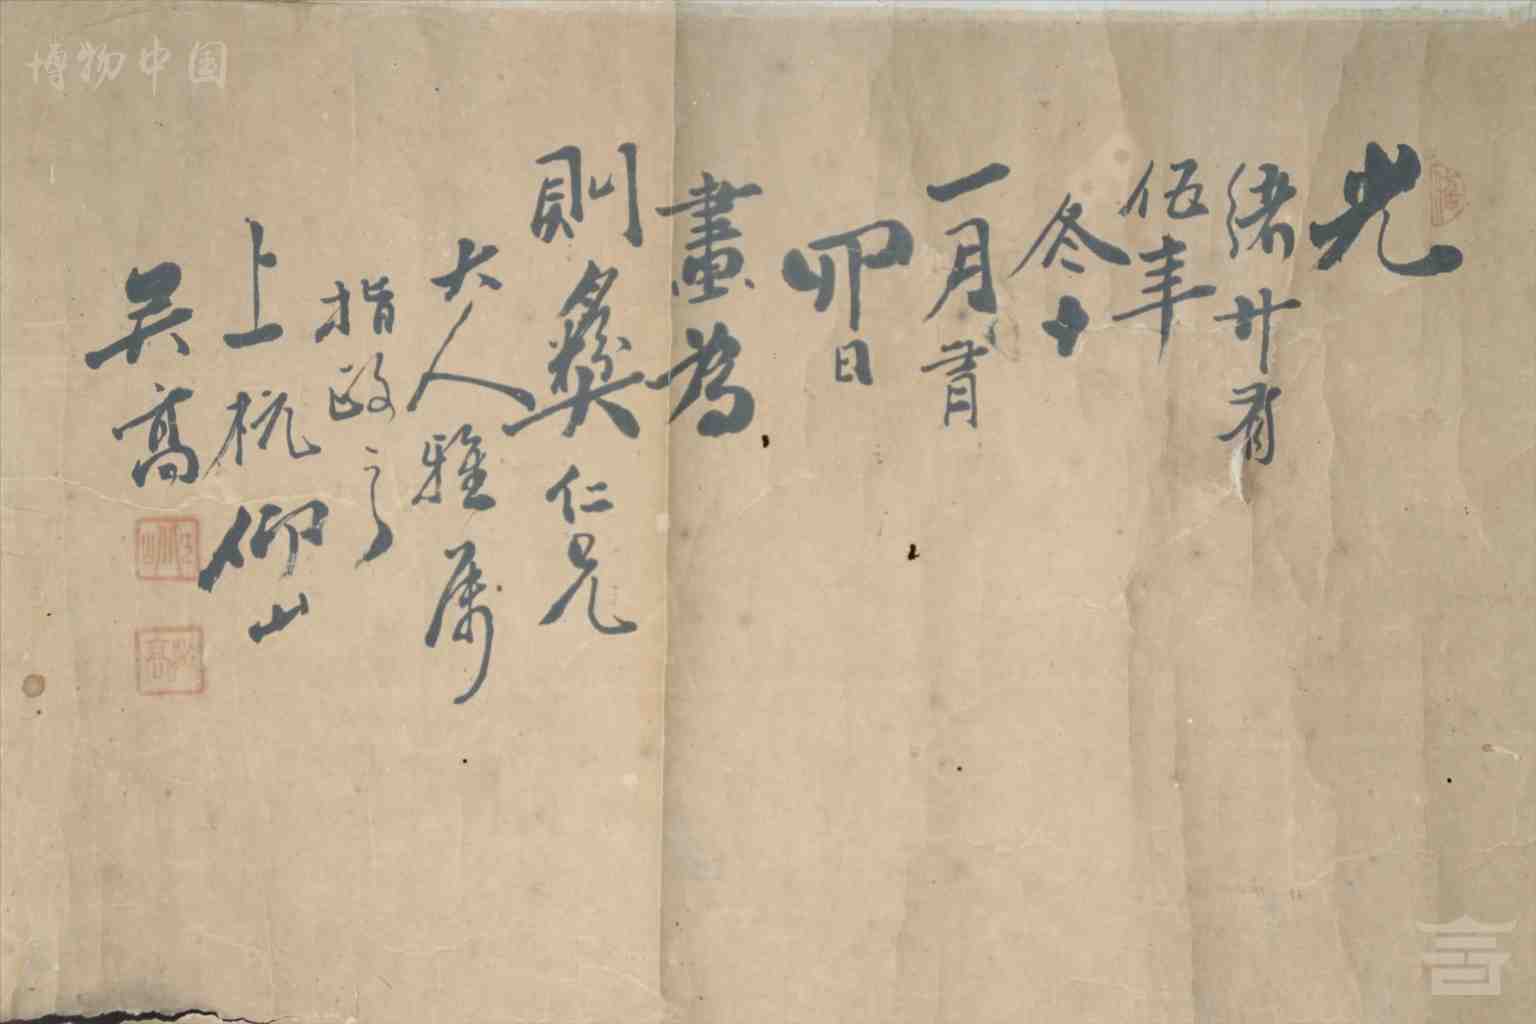 光
緒廿有
伍年
冬十
一月青
卯日
畫為
則彝仁兄
大人雅屬
指政之
上杭仰山
吴高
博物中国